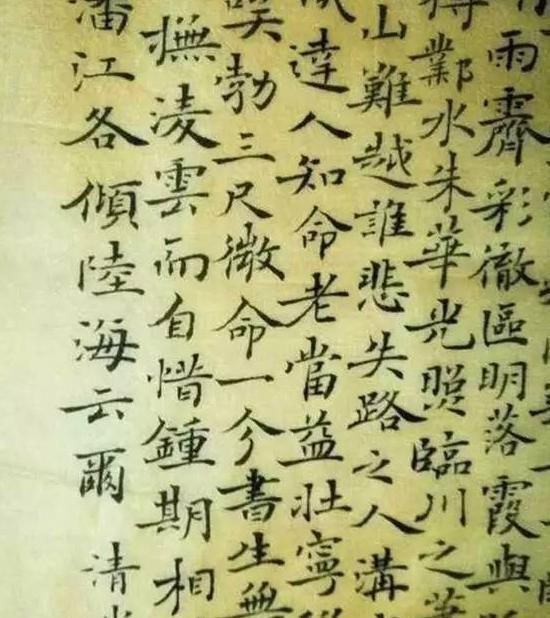 雨霽彩徹區明落霞與
鄴水朱華光照臨川之筆
山難越誰悲失路之人溝
達人知命老當益壯寧
勃三尺微命一介書生無
撫淩雲而自惜鍾期相
潘江各傾陸海云爾 清